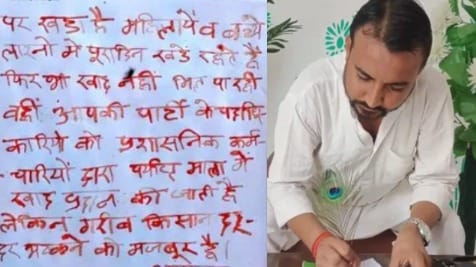 पर खड़ा है महिलायें व बच्चे
लाइनो में पूरादिन खड़ें रहते हैं
फिर भी खाद नहीं मिल पा रही
वहीं आपकी पार्टी के पदाधि-
कारियों को प्रशासनिक कर्म-
-चारियों द्वारा पर्याप्त मात्रा में
खाद प्रदान की जाती है
लेकिन गरीब किसान दर-
दर भटकने को मजबूर है।